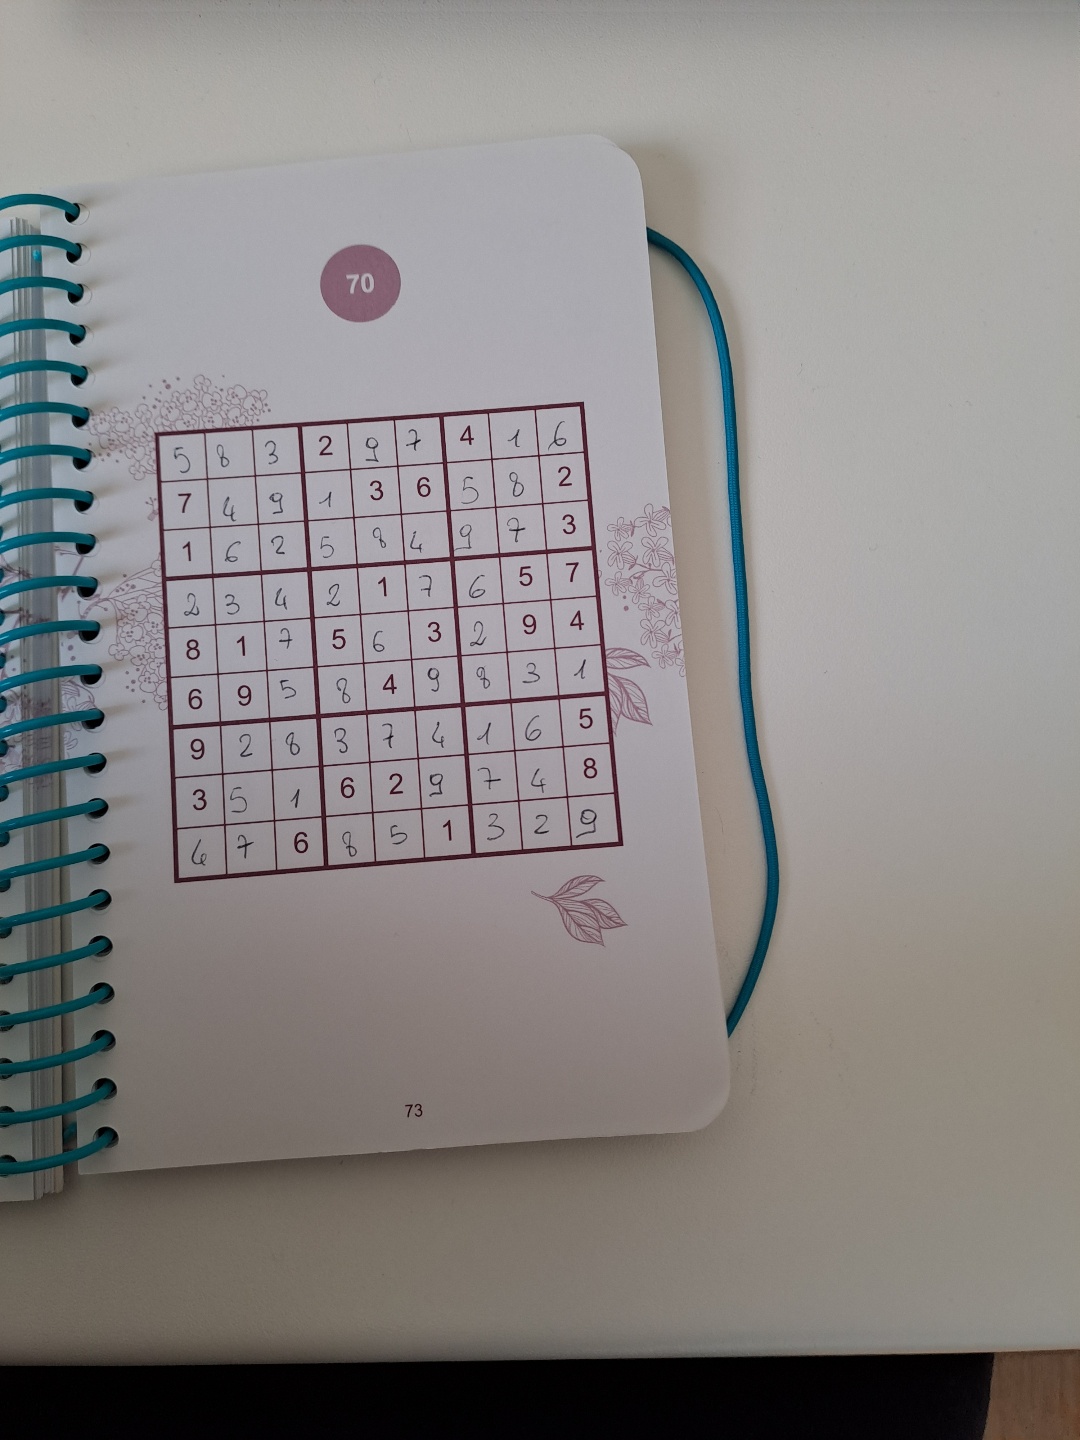 70
5 8 3 2 9 7 4 1 6
7 4 9 1 3 6 5 8 2
1 6 2 5 8 4 9 7 3
2 3 4 2 1 7 6 5 7
8 1 7 5 6 3 2 9 4
6 9 5 8 4 9 8 3 1
9 2 8 3 7 4 1 6 5
3 5 1 6 2 9 7 4 8
4 7 6 8 5 1 3 2 9
73